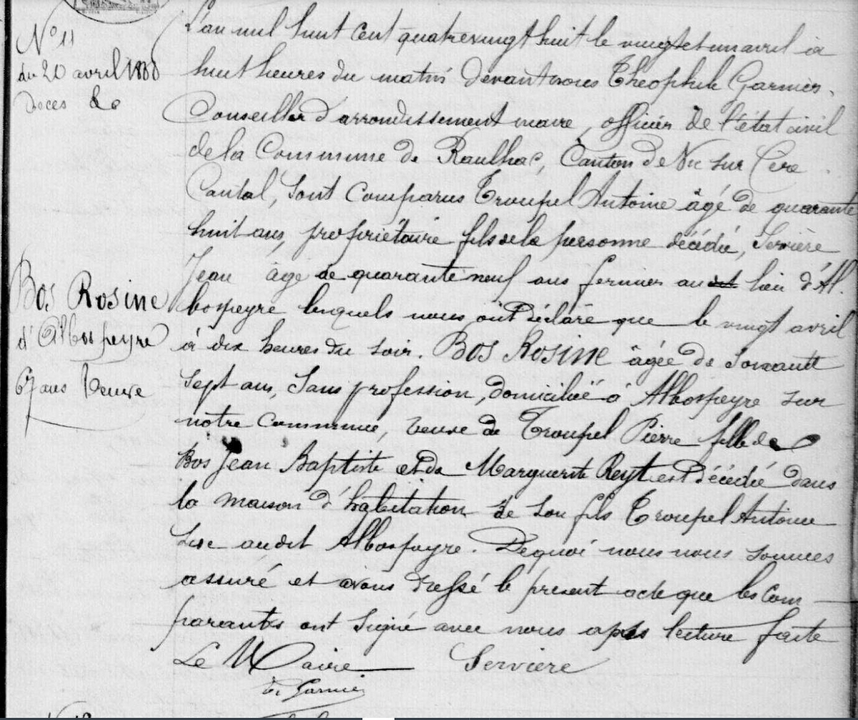 N° 11
du 20 avril 1888
Décès de
Bos Rosine
d'Albospeyre
67 ans Veuve
L'an mil huit cent quatrevingt huit le vingt et un avril à
huit heures du matin devant nous Théophile Garnier,
Conseiller d'arrondissement maire, officier de l'état civil
de la Commune de Raulhac, Canton de Vic sur Cere
Cantal, Sont Comparus Troupel Antoine âgé de quarante
huit ans, propriétaire fils de la personne décédée, Servière
Jean âgé de quarante neuf ans fermier au lieu d'Al-
bospeyre lesquels nous ont déclaré que le vingt avril
à dix heures du soir. Bos Rosine âgée de soixante
sept ans, sans profession, domiciliée à Albospeyre sur
notre Commune, veuve de Troupel Pierre fille de
Bos Jean Baptiste et de Marguerite Reyt est décédée dans
la maison d'habitation de son fils Troupel Antoine
sise audit Albospeyre. De quoi nous nous sommes
assuré et avons dressé le present acte que les Com-
parants ont signé avec nous après lecture faite
Le Maire Serviere
Th. Garnier